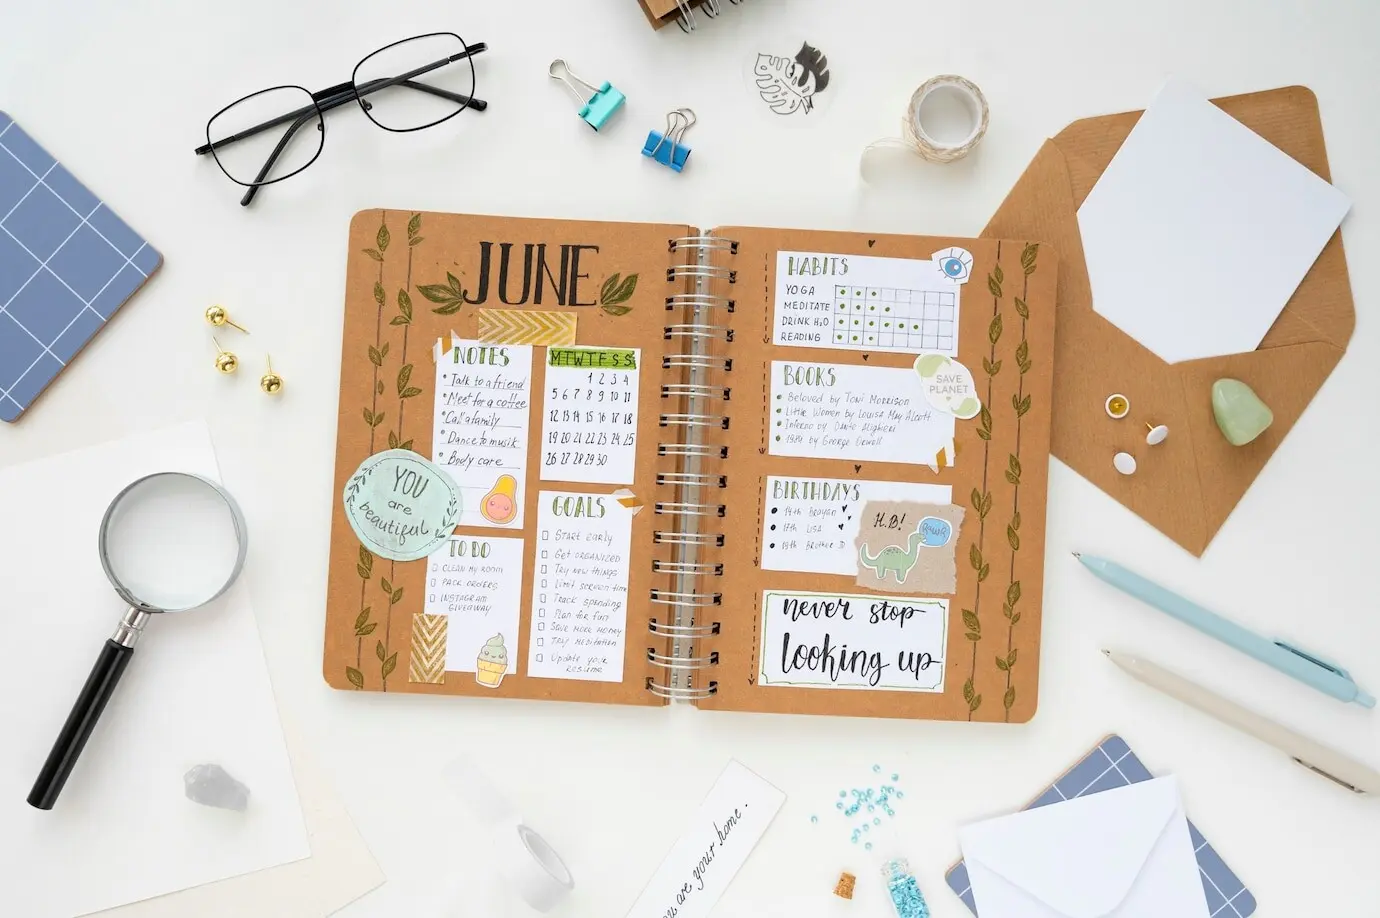 JUNE
NOTES
Talk to a friend
Meet for a coffee
Call a family
Dance to musik
Body care
M T W T F S S
1 2 3 4
5 6 7 8 9 10 11
12 13 14 15 16 17 18
19 20 21 22 23 24 25
26 27 28 29 30
YOU
are
beautiful
TO DO
CLEAN MY ROOM
PACK ORDERS
INSTAGRAM
GIVEAWAY
GOALS
START EARLY
Get ORGANIZED
Try new things
Limit screen time
Track spending
Plan for fun
SAVE MORE MONEY
TRY MEDITATION
Update your
resume
HABITS
YOGA
MEDITATE
DRINK H2O
READING
BOOKS
Beloved by Toni Morrison
Little Women by Louisa May Alcott
Inferno by Dante Alighieri
1984 by George Orwell
SAVE
PLANET
BIRTHDAYS
14th Brayan
17th LISA
19th Brother
H.B!
RAWR
never stop
looking up
are your home.